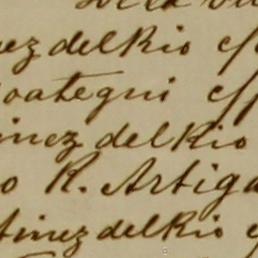 nez del Rio c/
oategui c/
inez del Rio
o R. Artiga
tinez del Rio c